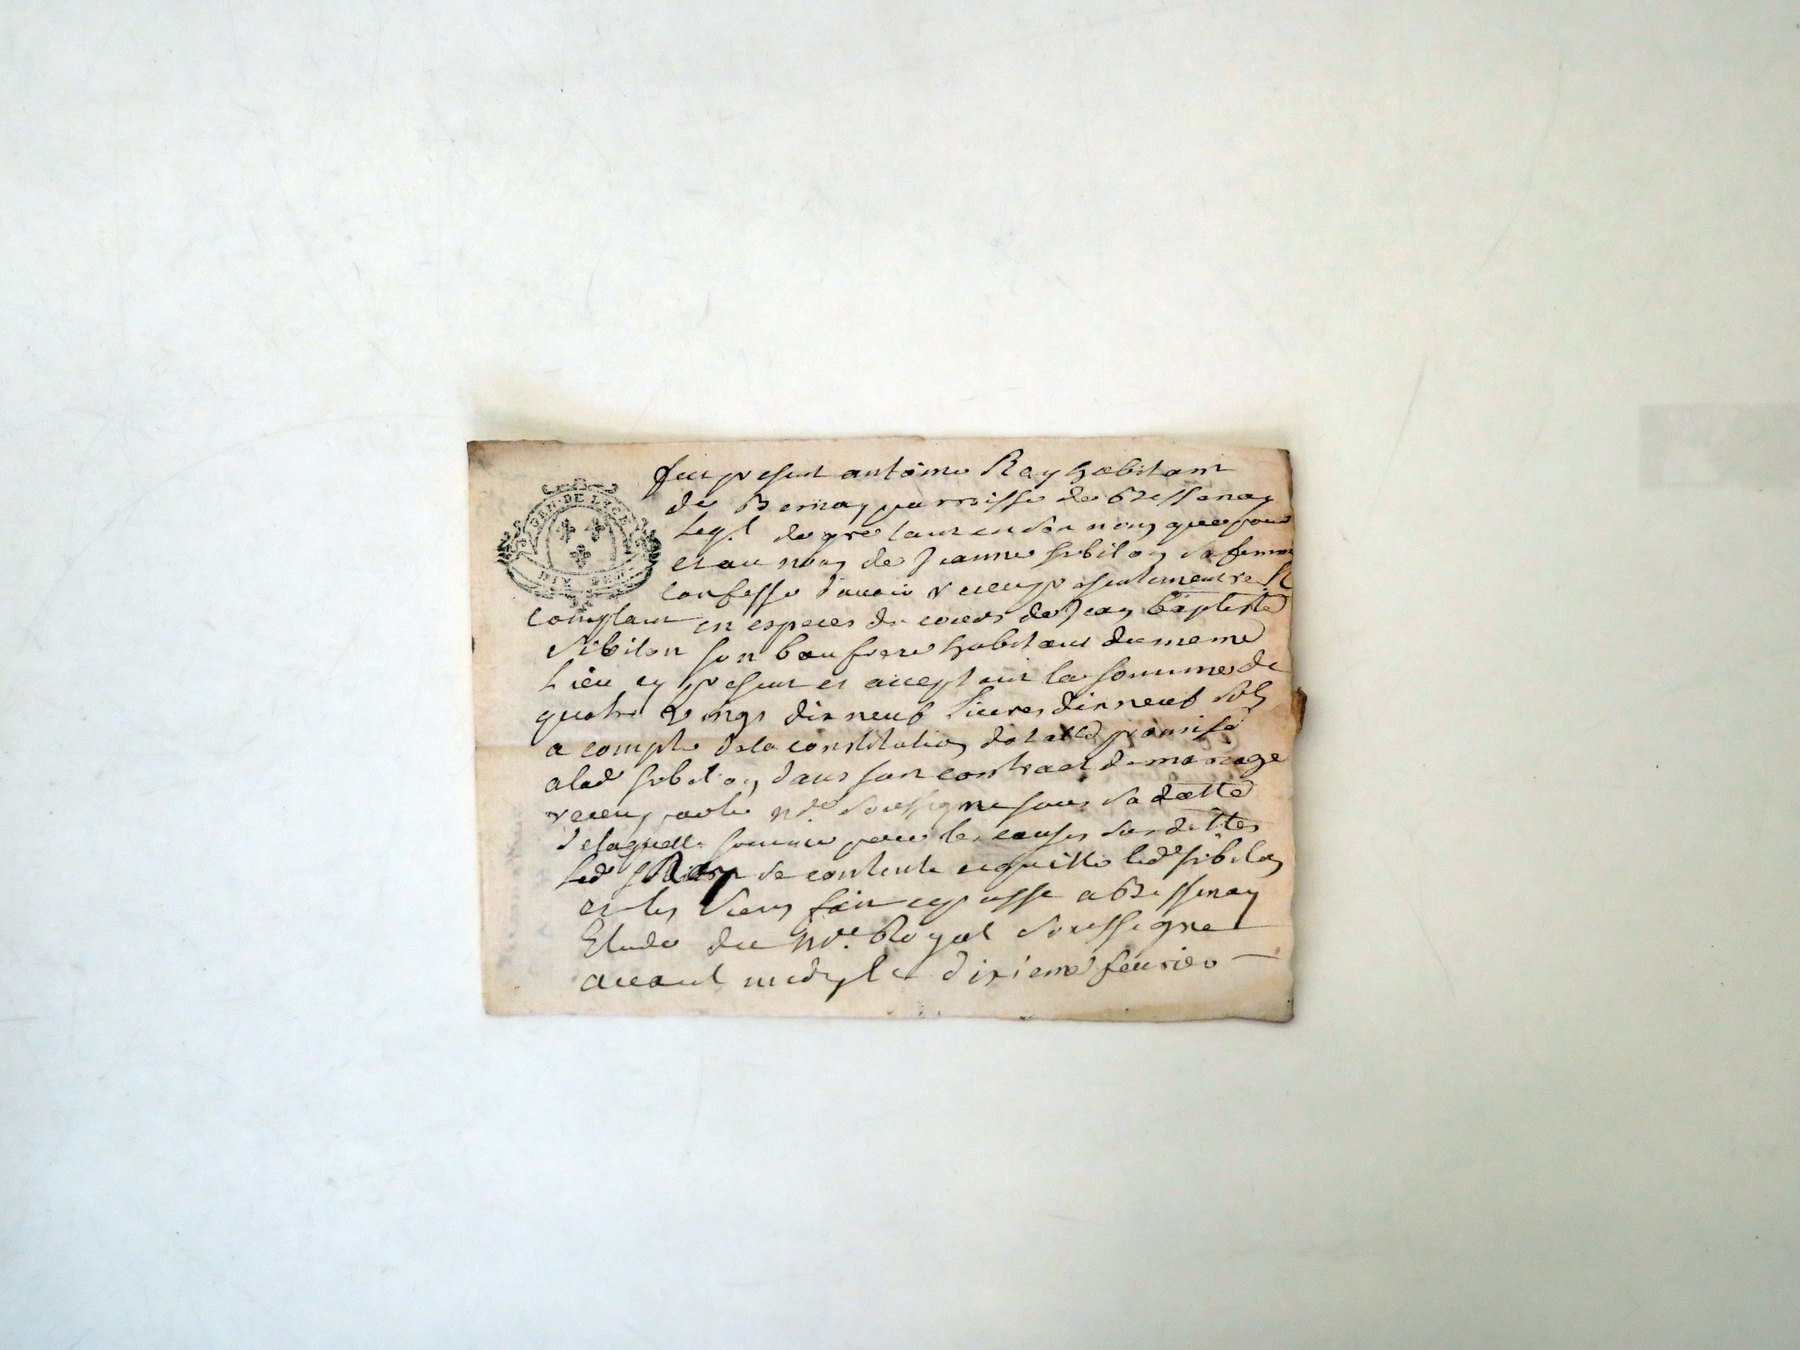 GEN. DE LYON
DIX DEN.
fut present antoine Ray habitant
de Bernay parroisse de Bessenay
Leq.l de gre tant en son nom que pour
et au nom de Jeanne Sibilon sa femme
confesse d'avoir receu presentement
comptant en especes de cours de Jean Baptiste
Sibilon son beau frere habitant du meme
Lieu cy present et acceptant la somme de
quatre vingt dix neuf Livres dix neuf sols
a compte de la constitution dotalle promise
a lad Sibilon dans son contract de mariage
receu par le n.re soussigne sous sa datte
de laquelle somme pour les causes susdittes
led Ray se contente et quitte led Sibilon
et les siens fait et passe a Bessenay
Etude du n.re Royal soussigne
avant midy le dixieme fevrier